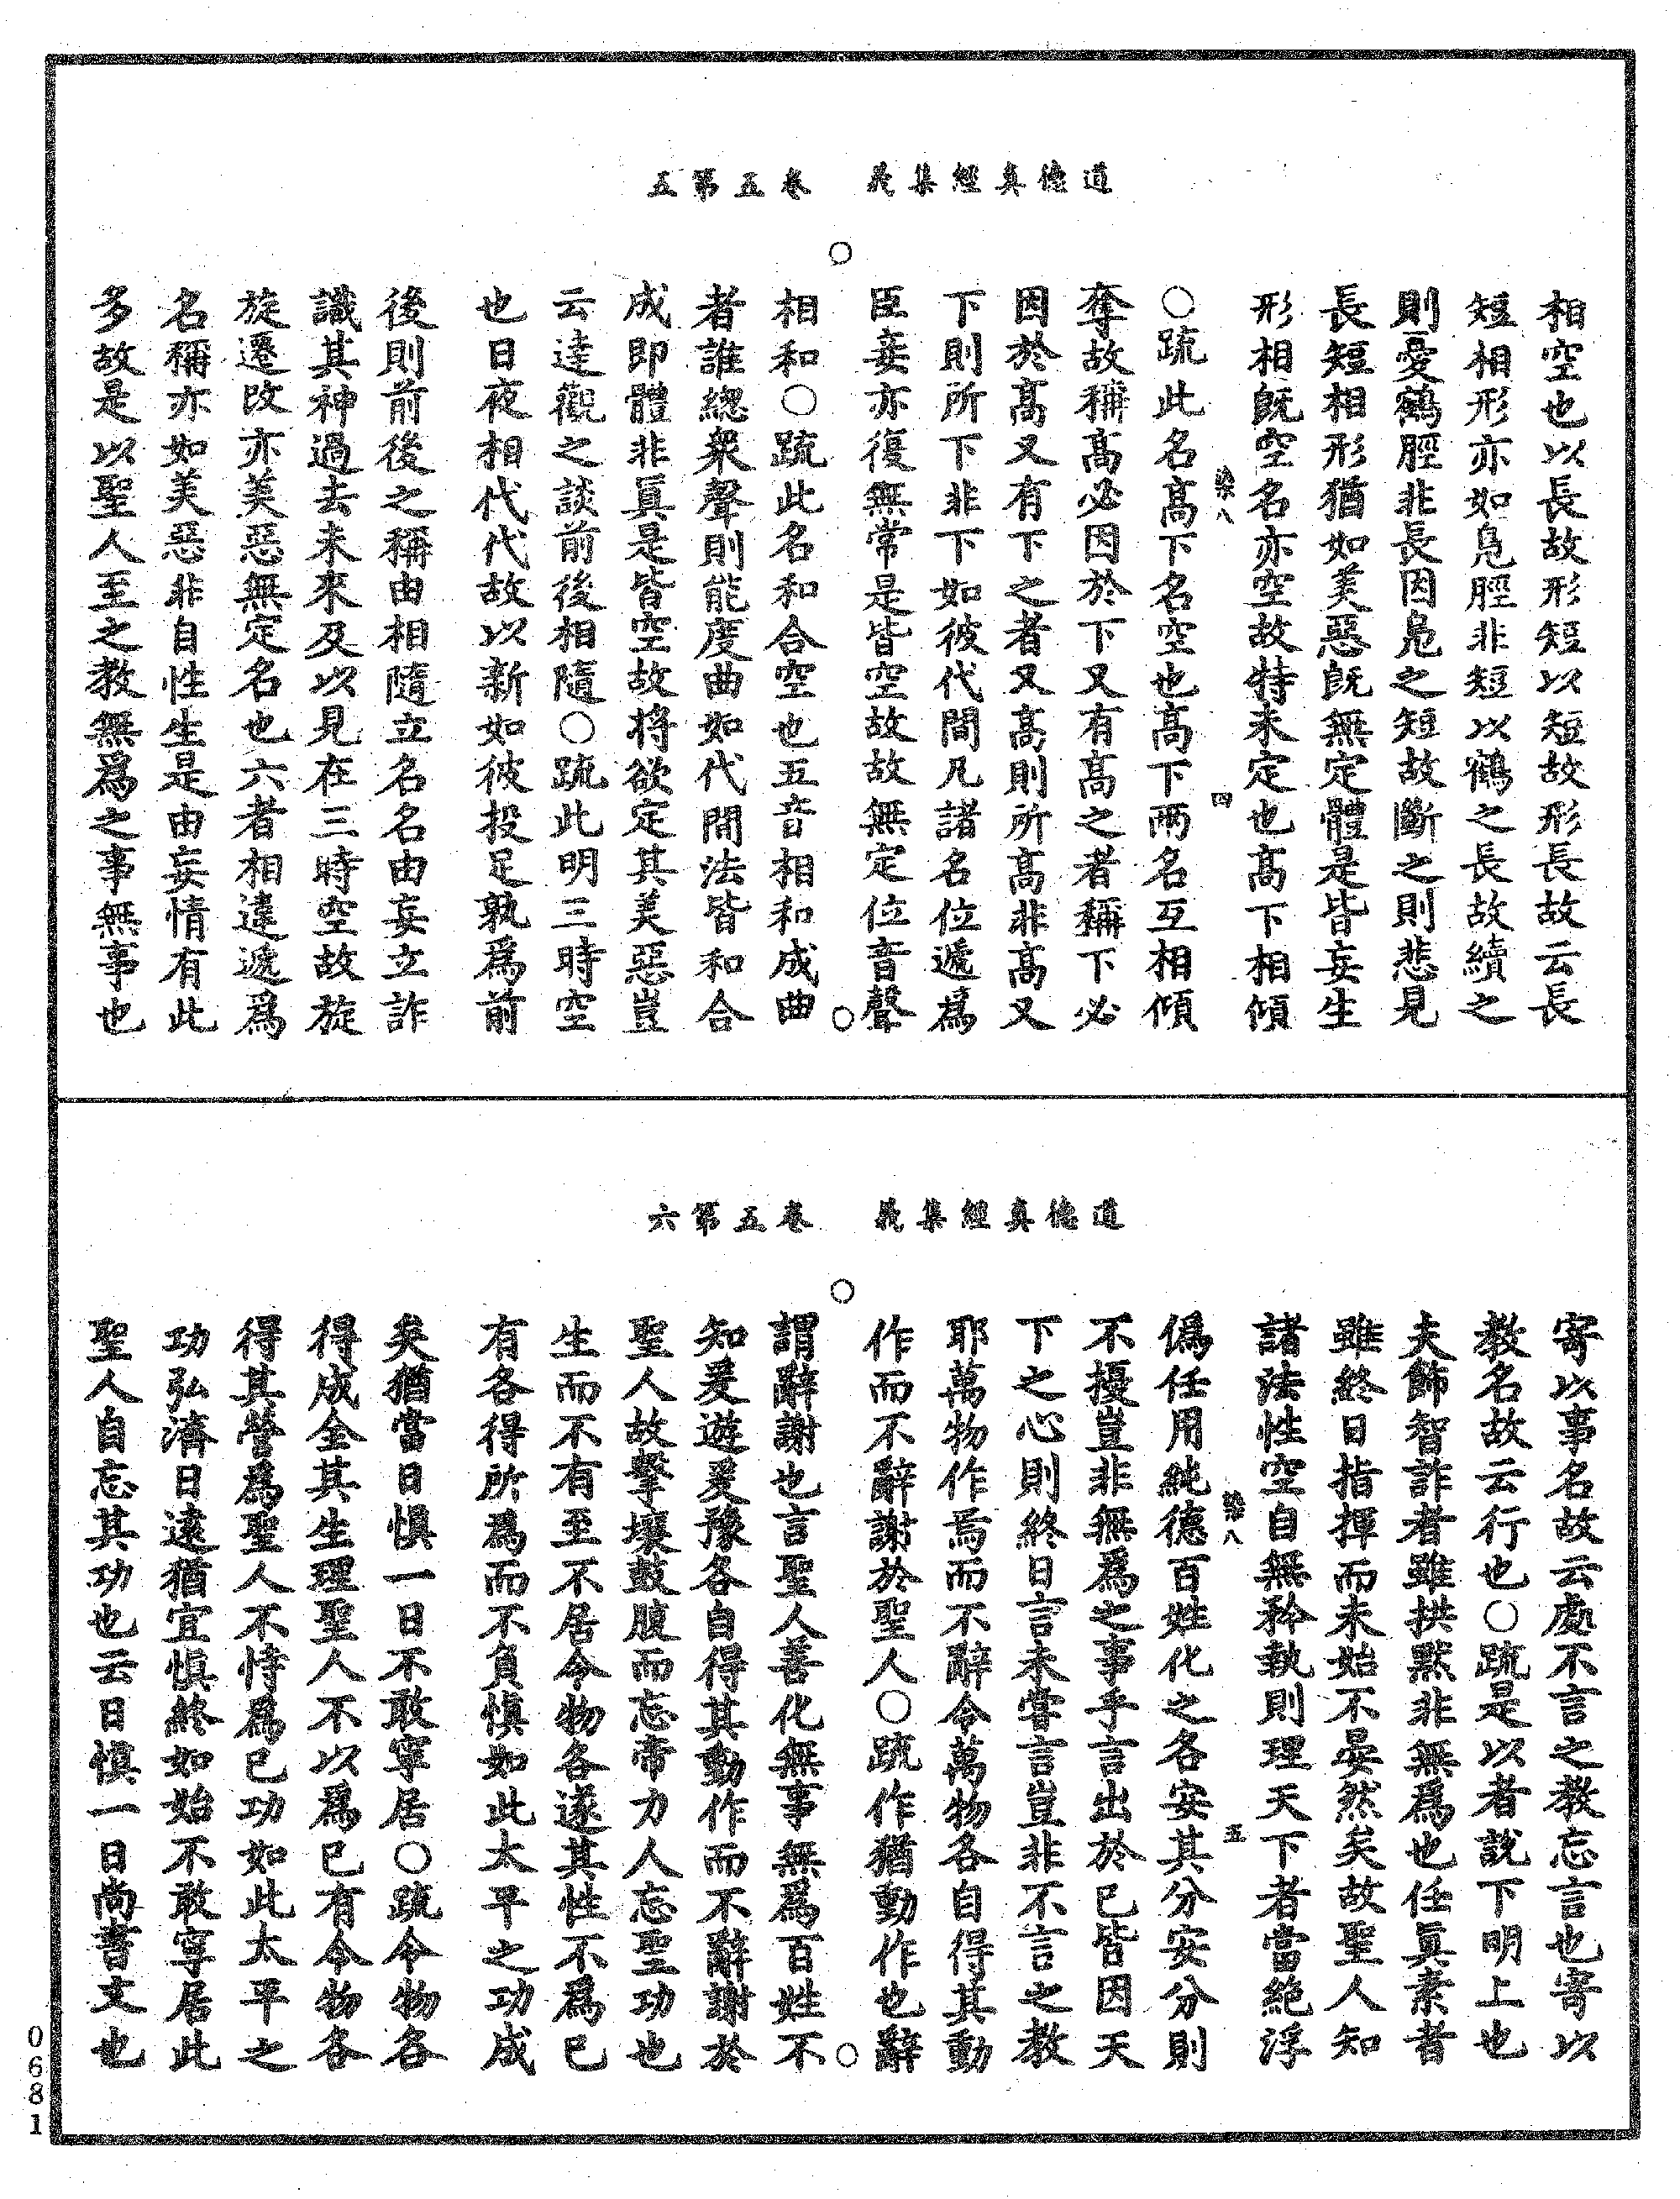 道德真經集義　卷五第五
相空也以長故形短以短故形長故云長
短相形亦如鳧脛非短以鶴之長故續之
則憂鶴脛非長因鳧之短故斷之則悲見
長短相形猶如美惡旣無定體是皆妄生
形相旣空名亦空故特未定也高下相傾
染八　四
○疏此名高下名空也高下兩名互相傾
奪故稱高必因於下又有高之者稱下必
因於高又有下之者又高則所高非高又
下則所下非下如彼代間凡諸名位遞爲
臣妾亦復無常是皆空故故無定位音聲
相和○疏此名和合空也五音相和成曲
者誰緫衆聲則能度曲如代間法皆和合
成即體非眞是皆空故將欲定其美惡豈
云達觀之談前後相隨○疏此明三時空
也日夜相代代故以新如彼投足孰爲前
後則前後之稱由相隨立名名由妄立詐
識其神過去未來及以見在三時空故旋
旋遷改亦美惡無定名也六者相違遞爲
名稱亦如美惡非自性生是由妄情有此
多故是以聖人至之教無爲之事無事也
道德真經集義　卷五第六
寄以事名故云處不言之教忘言也寄以
教名故云行也○疏是以者說下明上也
夫飾智詐者雖拱黙非無爲也任眞素者
雖終日指揮而未始不晏然矣故聖人知
諸法性空自無矜執則理天下者當絶浮
染八　五
僞任用純德百姓化之各安其分安分則
不擾豈非無爲之事乎言出於已皆因天
下之心則終日言未甞言豈非不言之教
耶萬物作焉而不辭令萬物各自得其動
作而不辭謝於聖人○疏作猶動作也辭
謂辭謝也言聖人善化無事無爲百姓不
知爰遊爰豫各自得其動作而不辭謝於
聖人故擊壤鼓腹而忘帝力人忘聖功也
生而不有至不居令物各遂其性不爲已
有各得所爲而不負慎如此太平之功成
矣猶當日愼一日不敢寧居○疏令物各
得成全其生理聖人不以爲已有令物各
得其營爲聖人不恃爲已功如此太平之
功弘濟日遠猶宜愼終如始不敢寧居此
聖人自忘其功也云日愼一日尚書文也
0681